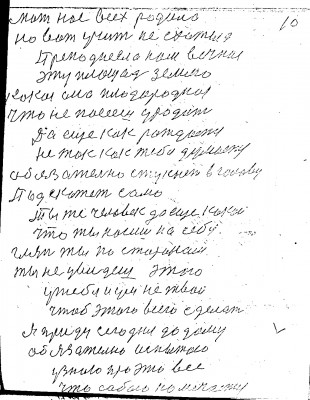 10
мат нас всех родила
но вот учит не
Преподнесла нам вечная
эту площад землю
какая она плодородная
что не посееш уродит
Да еще как
не так как тебе
обязателно стукнет в голову
Подскажет сама
Ты же человек да еще какой
что ты носиш на себе
глян ты по сторонам
ты не увидеш этого
у тебя и ум не твой
чтоб этого всего сделат
Я приду сегодня до дому
обязателно
узнаю про это все
что сабою